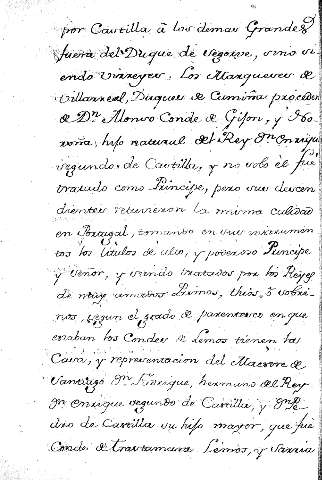 por Castilla â los demas Grandes
fuera del Duque de Segorve, sino si
endo Virreyes, Los Marqueses de
Villarreal, Duques de Camiña proceden
de Dn. Alonso Conde de Gijon, y Noro
roña, hijo natural del Rey Dn. Enrique
segundo de Castilla, y no solo él fué
tratado como Principe, pero sus descen
dientes retuvieron la misma calidad
en Portugal, tomando en sus instrumen
tos los titulos de alto, y poderoso Principe
y Señor, y siendo tratados por los Reyes
de muy amados Primos, thios, ô sobri
nos, segun el grado de parentesco en que
estaban los Condes de Lemos tienen las
Casa, y representacion del Maestre de
Santiago Dn. Fadrique, hermano del Rey
Dn. Enrique segundo de Castilla, y Dn. Pe
dro de Castilla su hijo mayor, que fué
Conde de Trastamara Lemos, y Sarria